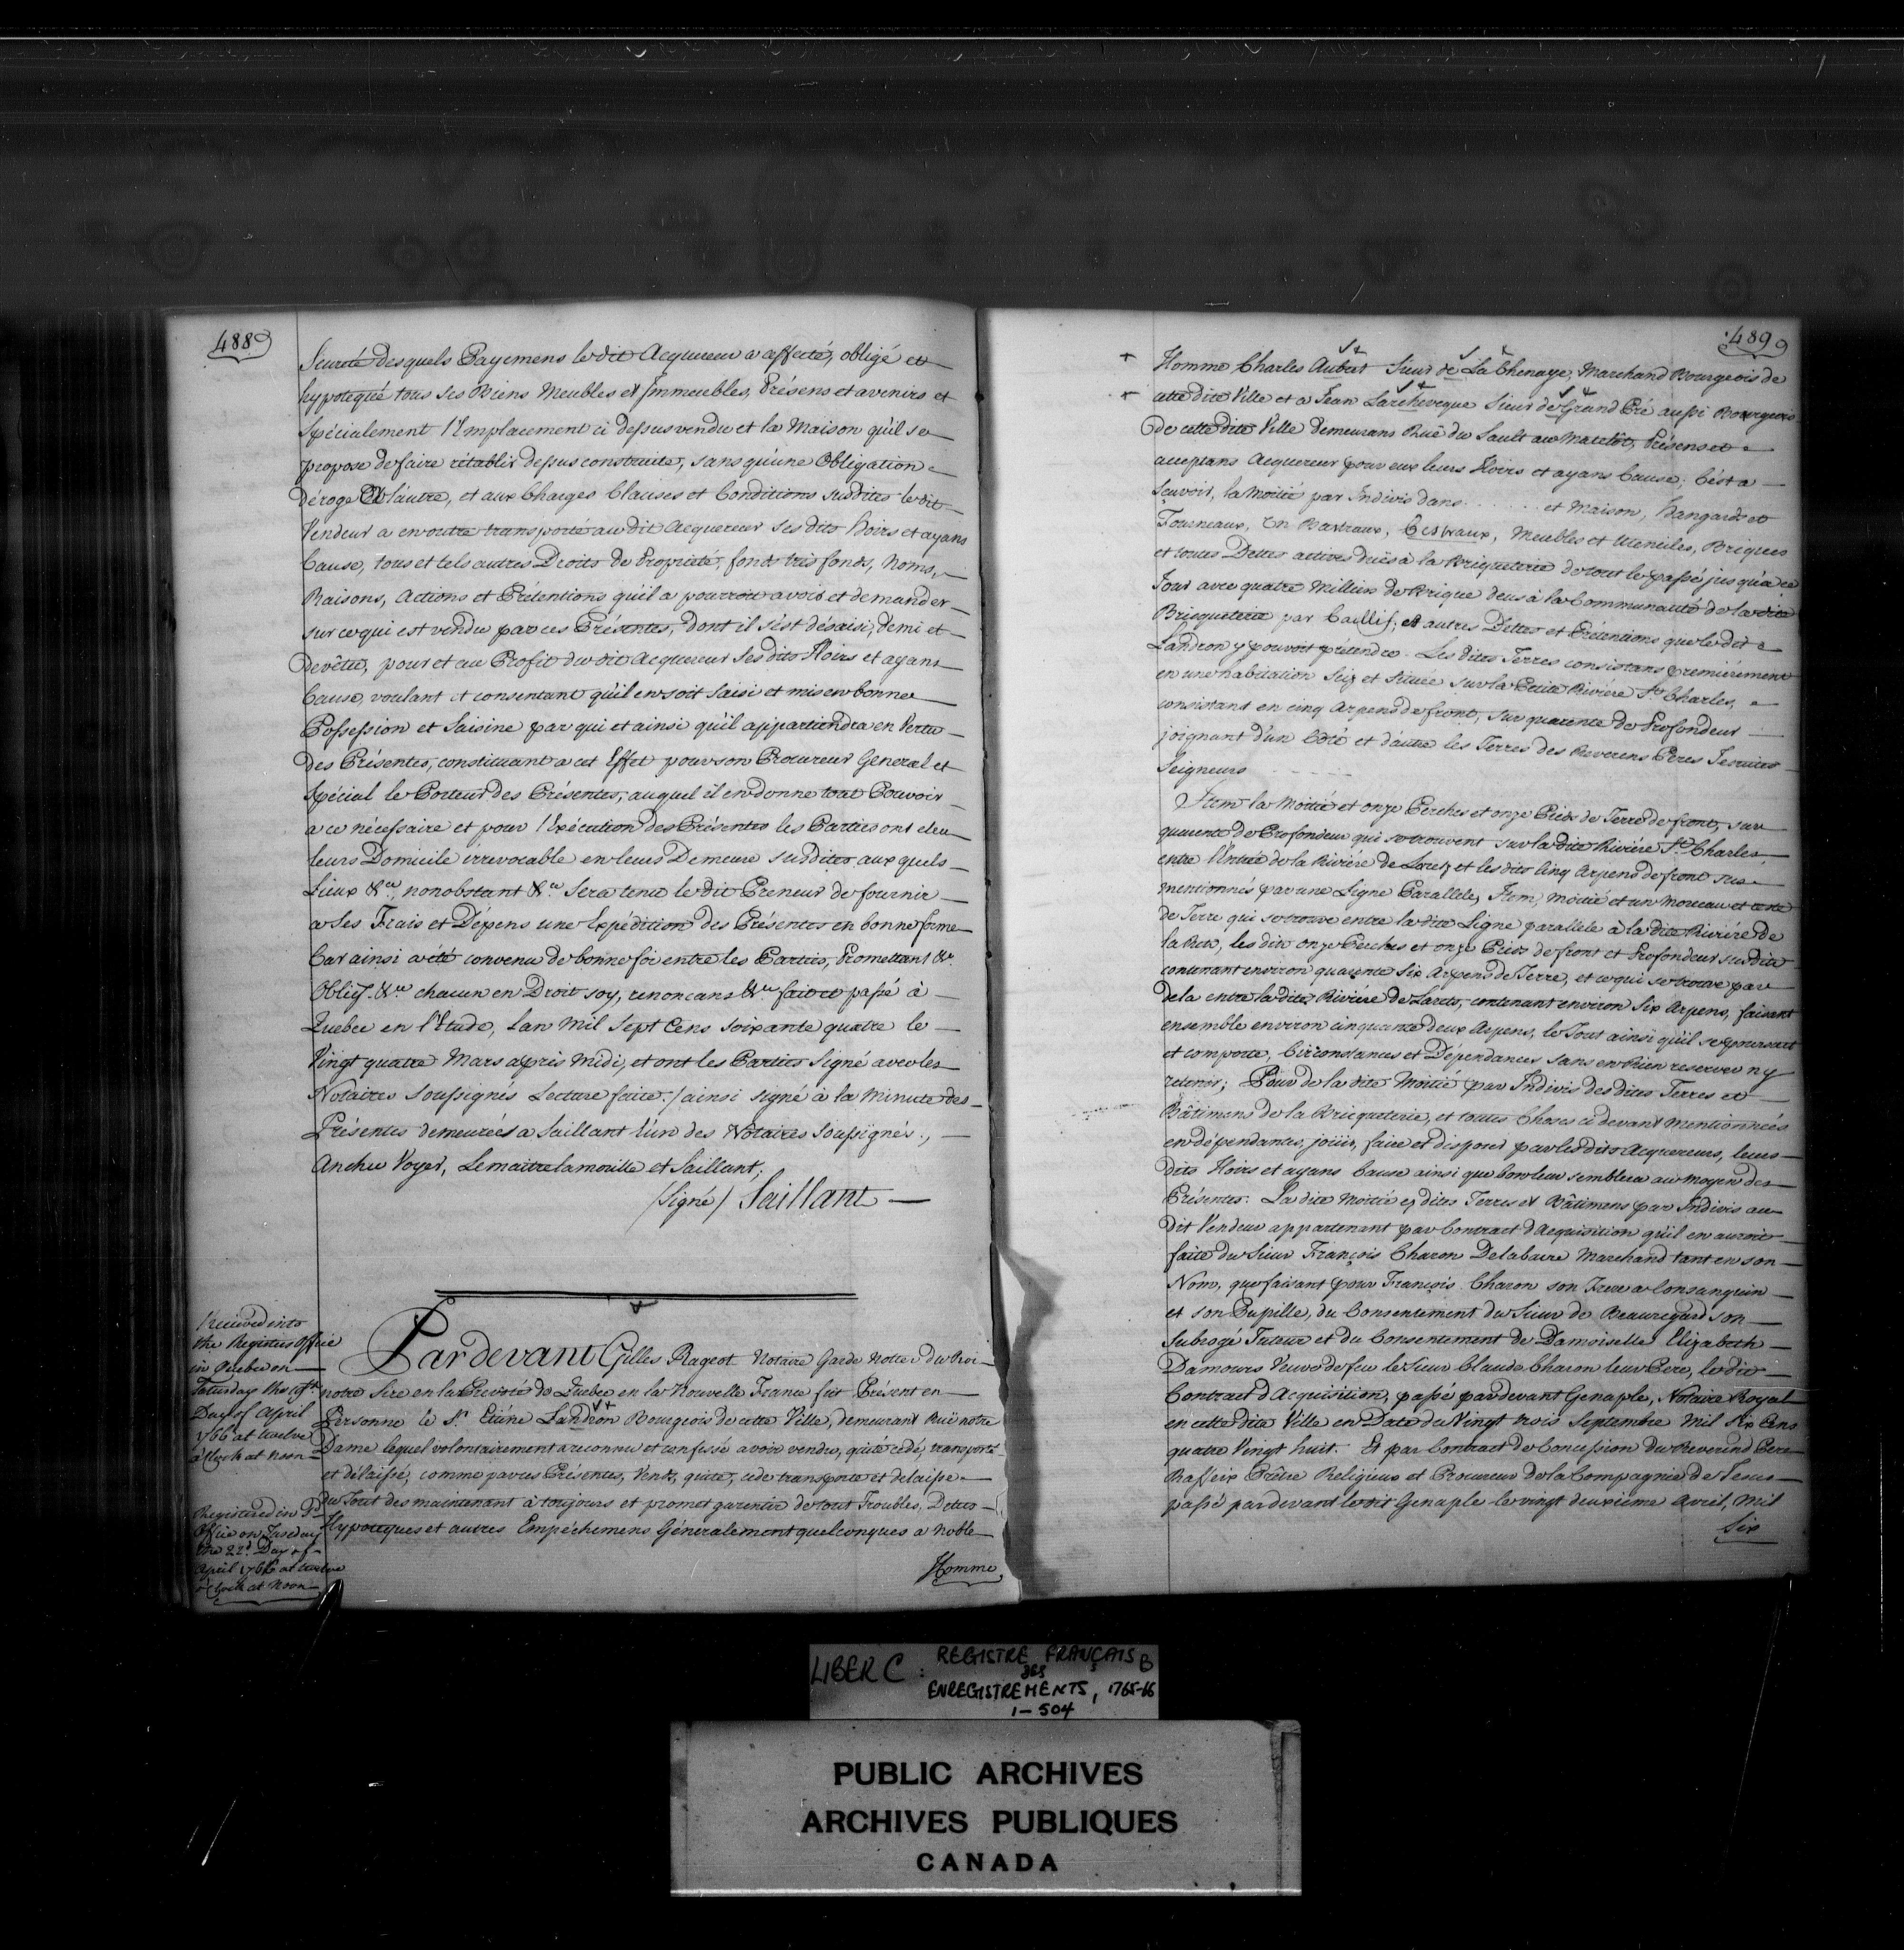 488
Seureté desquels Payemens ledit Acquereur a affecté, obligé et
hypotequé tous ses Biens Meubles et Immeubles, Présens et avenirs et
Spécialement l'Emplacement ci dessus vendu et la Maison qu'il se
propose de faire rétablir dessus construite, sans qu'une Obligation
déroge à l'autre, et aux Charges Clauses et Conditions susdites ledit
Vendeur a en outre transporté audit Acquereur ses dits hoirs et ayans
Cause, tous et tels autres Droits de Propriété, fonds tres fonds, Noms,
Raisons, Actions et Prétentions qu'il a pourroit avoir et demander
sur ce qui est vendu par ces Présentes, dont il s'est désaisi, demi et
devêtu, pour et au Profit du dit Acquereur ses dits Hoirs et ayans
Cause, voulant et consentant qu'il en soit saisi et mis en bonne
Possession et Saisine par qui et ainsi qu'il appartiendra en Vertu
des Présentes, constituant a cet Effet pour son Procureur General et
Spécial le Porteur des Présentes, auquel il en donne tout Pouvoir
a ce nécessaire et pour l'Exécution des Présentes les Parties ont eleu
leurs Domicile irrevocable en leurs Demeure susdites aux quels
Lieux &ca nonobstant &ca Sera tenu le dit Preneur de fournir
a ses Frais et Dépens une Expédition des Présentes en bonne forme
Car ainsi a été convenu de bonne foi entre les Parties, Promettant &ca
Oblig.t &ca chacun en Droit soy, renoncans &ca fait et passé à
Quebec en l'Etude, Lan Mil Sept Cens soixante quatre le
Vingt quatre Mars apris midi, et ont les Parties signé avec les
Notaires soussignés Lecture faite. / ainsi signé à la Minute des
Présentes demeurées a Saillant l'un des Notaires Soussignés.,
Anchu Voyer, Lemaitre lamorille et Saillant;
/Signé/ Saillant
Received into
the Registers Office
in Quebec on
Saturday the 19th
Day of April
1766 at twelve
o'Clock at Noon
Registered in Sd
Office on Tuesday
the 22d Day of
April 1766 at twelve
o'Clock at Noon
Pardevant Gilles Rageot Notaire Garde Nottes du Roi
notre Sire en la Prevosté de Quebec en la Nouvelle France fut Présent en
Personne le Sr. Etiéne Landron Bourgeois de cette Ville, demeurant Ruë notre
Dame lequel volontairement a reconnu et confessé avoir vendu, quité cedé, transporté
et délaissé, comme par ces Présentes, Vend, quitte, cede transporte et delaisse
du Tout des maintenant à toujours et promet garentir de tout Troubles, Dettes
Hypoteques et autres Empéchemens Géneralement quelconques a Noble
Homme
489
Homme Charles Aubert Sieur de La Chenaye, Marchand Bourgeois de
cette dite Ville et a Jean Larcheveque Sieur de Grand Pré aussi Bourgeois
De cette dite Ville demeurans Ruë du Sault au Matelot, Présens et
acceptans Acquereur pour eux leurs Hoirs et ayans Cause; Cést a
Sçavoir, la Moitié par Indivis dans ...... et Maison, hangards et
Fourneaux, En Bartraux, Cestraux, Meubles et Utenciles, Briques
et toutes Dettes actives duës à la Briqueterie de tout le passé jusqu'à ce
Jour avec quatre Milliers de Brique deus à la Communauté de la dite
Bricqueterie par Caillif; et autres Dettes et Prétentions que le dit
Landron y pouvoit prétendre. Les dites Terres consistans premiérement
en une habitation Seiz et Située sur la Petite Riviere St. Charles,
consistans en cinq Arpens de front, sur quarente de Profondeur
joignant d'un Coté et d'autre les Terres des Reverens Peres Jesuites
Seigneurs .....
Item la Moitié et onze Perches et onze Pieds de Terre de front, sur
quarente de Profondeur qui se trouvent sur la dite Riviére St. Charles
entre l'Entrée de la Riviére de Laretz et les dits Cinq Arpens de front sus
mentionnés par une Ligne Parallele, Item, Moitié et un Morceau et reste
de Terre qui se trouve entre la dite Ligne parallele à la dite Riviere de
la Rets, les dits onze Perches et onze Pieds de front et Profondeur susdite
contenant environ quarente Six Arpens de Terre, et ce qui se trouve par
dela entre la dite Riviére de Larets, contenant environ Six Arpens, faisant
ensemble environ cinquante deux Arpens, le Tout ainsi qu'il se poursuit
et comporte, Circonstances et Dépendances sans en Rien reserver ny
retenir; Pour de la dite Moitié par Indivis des dites Terres et
Bâtimens de la Bricqueterie, et toutes Choses ci devant Mentionnées
en dépendantes, joüir, faire et disposer par les dits Acquereurs, leurs
dits Hoirs et ayans Cause ainsi que bon leur semblera au Moyen des
Présentes: La dite Moitié es dites Terres et Bâtimens par Indivis au
dit Vendeur appartenant par Contract d'Acquisition qu'il en auroit
faite du Sieur François Charon Delabarre Marchand tant en son
Nom, que faisant pour François Charon son Frere a Consanguin
et son Pupille, du Consentement du Sieur de Beauregard son
Subrogé Tuteur et du Consentement de Damoiselle Elizabeth
Damours Veuve de feu le Sieur Claude Charon leur Pere, le dit
Contract d'Acquisition, passé par devant Genaple, Notaire Royal
en cette dite Ville en Date du Vingt trois Septembre Mil Six Cens
quatre Vingt huit. Et par Contract de Concession du Reverend Pere
Raffeix Prêtre Religieux et Procureur de la Compagnie de Jesus
passé par devant le dit Genaple le vingt deuxiéme Avril, Mil
Six
LIBER C : REGISTRE FRANÇAIS B
des
ENREGISTREMENTS, 1765-66
1-504
PUBLIC ARCHIVES
ARCHIVES PUBLIQUES
CANADA